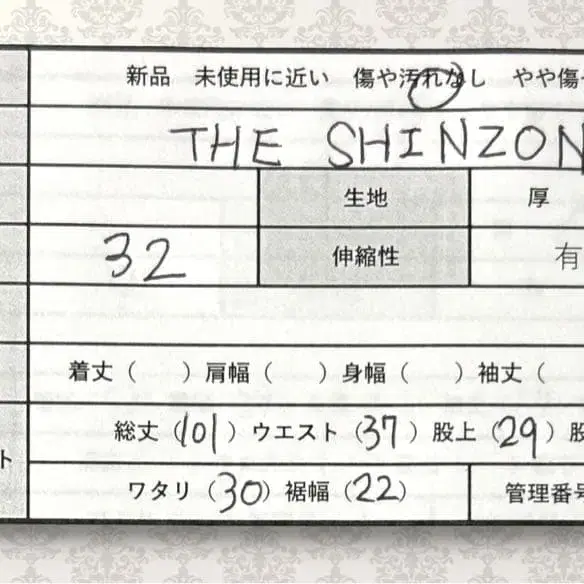 新品 未使用に近い 傷や汚れなし やや傷
THE SHINZON
生地 厚
32 伸縮性 有
着丈 ( ) 肩幅 ( ) 身幅 ( ) 袖丈 (
総丈 (101) ウエスト (37) 股上 (29) 股
ト
ワタリ (30) 裾幅 (22) 管理番号